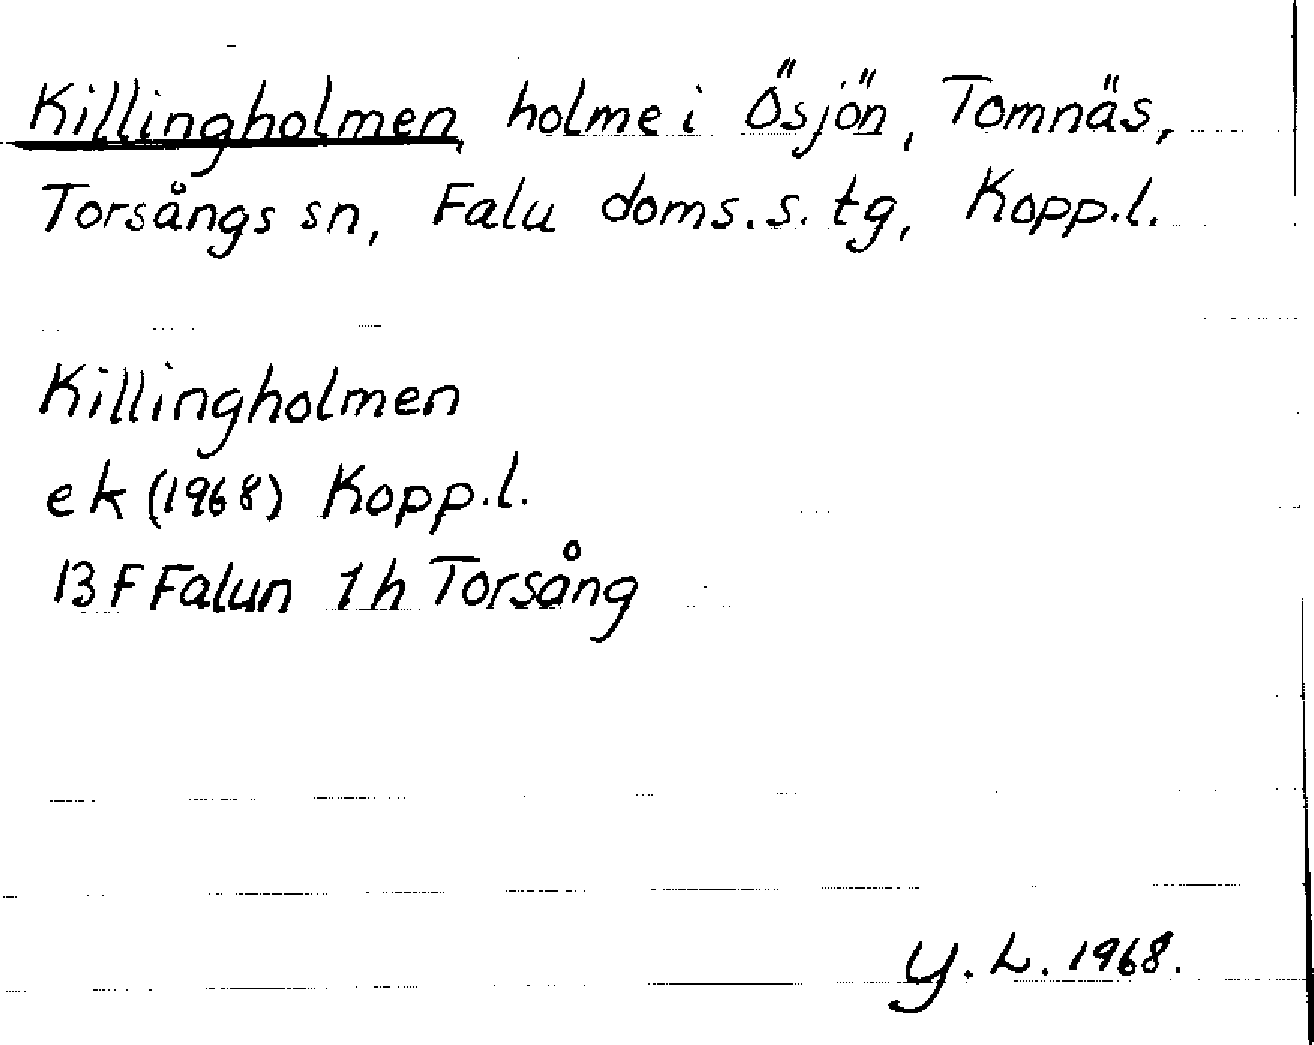 Killingholmen, holme i Ösjön, Tomnäs,
Torsångs sn, Falu doms.s. tg, Kopp.l.
Killingholmen
ek (1968) Kopp.l.
13 F Falun 1 h Torsång
Y. L. 1968.